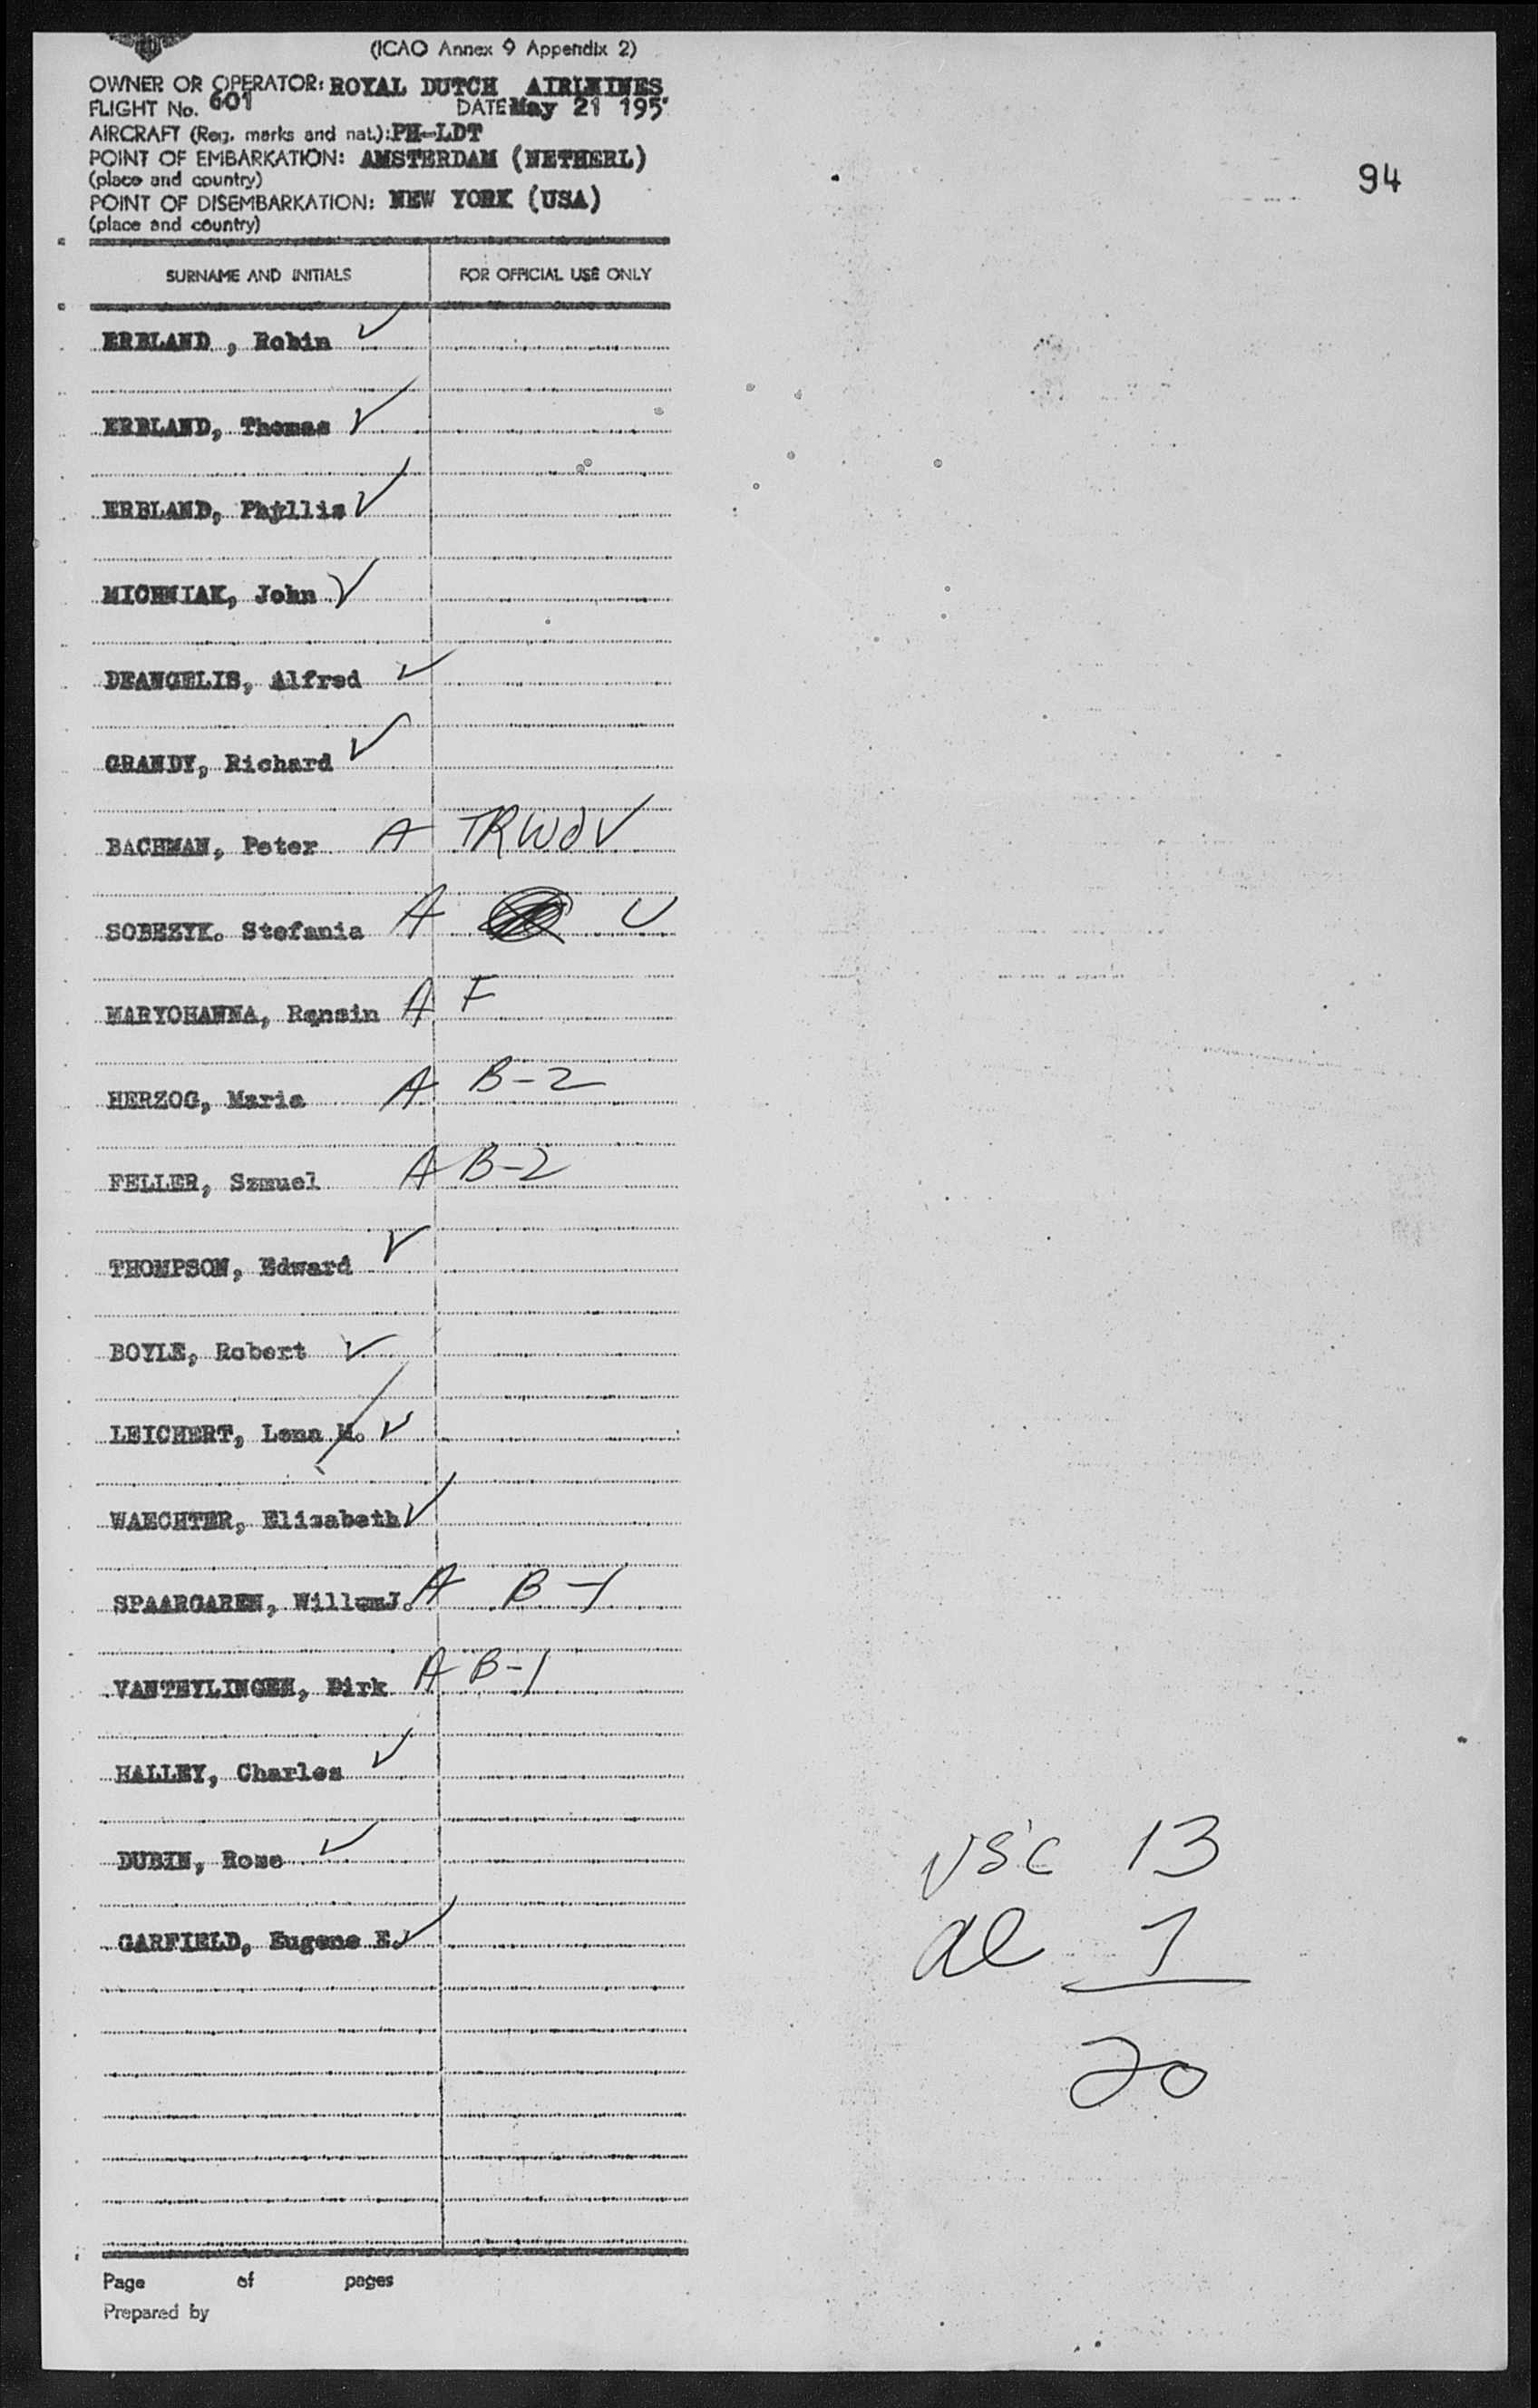 (ICAO Annex 9 Appendix 2)
OWNER OR OPERATOR: ROYAL DUTCH AIRLINES
FLIGHT No. 601 DATE May 21 195
AIRCRAFT (Reg. marks and nat.): PH-LDT
POINT OF EMBARKATION: AMSTERDAM (NETHERL)
(place and country)
94
POINT OF DISEMBARKATION: NEW YORK (USA)
(place and country)
SURNAME AND INITIALS FOR OFFICIAL USE ONLY
ERBLAND, Robin ✓
ERBLAND, Thomas ✓
ERBLAND, Phyllis ✓
MICHNIAK, John ✓
DEANGELIS, Alfred ✓
GRANDY, Richard ✓
BACHMAN, Peter A TRWOV
SOBEZYK. Stefania A
MARYOHANNA, Ransin A F
HERZOG, Maria A B-2
FELLER, Szmuel A B-2
THOMPSON, Edward ✓
BOYLE, Robert ✓
LEICHERT, Lena M. ✓
WAECHTER, Elisabeth ✓
SPAARGAREN, WillemJ. A B-1
VANTEYLINGEN, Dirk A B-1
HALLEY, Charles ✓
DUBIN, Rose ✓
GARFIELD, Eugene E. ✓
USC 13
al 7
20
Page of pages
Prepared by